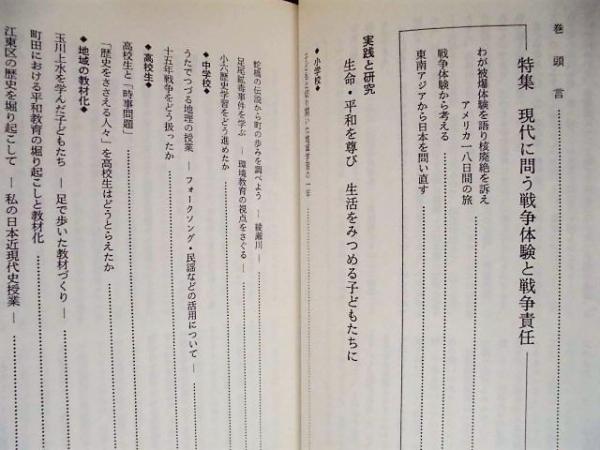 巻頭言
特集 現代に問う戦争体験と戦争責任
わが被爆体験を語り核廃絶を訴え
アメリカ一八日間の旅
戦争体験から考える
東南アジアから日本を問い直す
実践と研究
生命・平和を尊び 生活をみつめる子どもたちに
◆小学校◆
蛇橋の伝説から町の歩みを調べよう ―綾瀬川―
足尾鉱毒事件を学ぶ ―環境教育の視点をさぐる―
小六歴史学習をどう進めたか
◆中学校◆
うたでつづる地理の授業 ―フォークソング・民謡などの活用について―
十五年戦争をどう扱ったか
◆高校生◆
高校生と「時事問題」
「歴史をささえる人々」を高校生はどうとらえたか
◆地域の教材化◆
玉川上水を学んだ子どもたち ―足で歩いた教材づくり―
町田における平和教育の堀り起こしと教材化
江東区の歴史を堀り起こして ―私の日本近現代史授業―